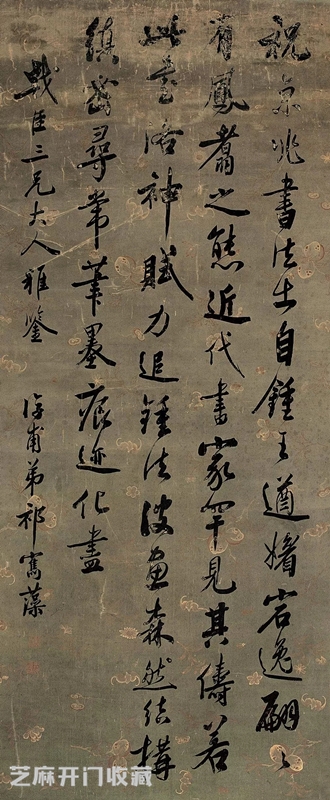 祝京兆书法出自鍾王遒媚宕逸翩翩
有鳳翥之態近代書家罕見其儔若
此卷洛神賦力追鍾法波畫森然結構
縝密尋常筆墨痕迹化盡
戟臣三兄大人雅鑒
淳甫弟祁寯藻
芝麻开门收藏